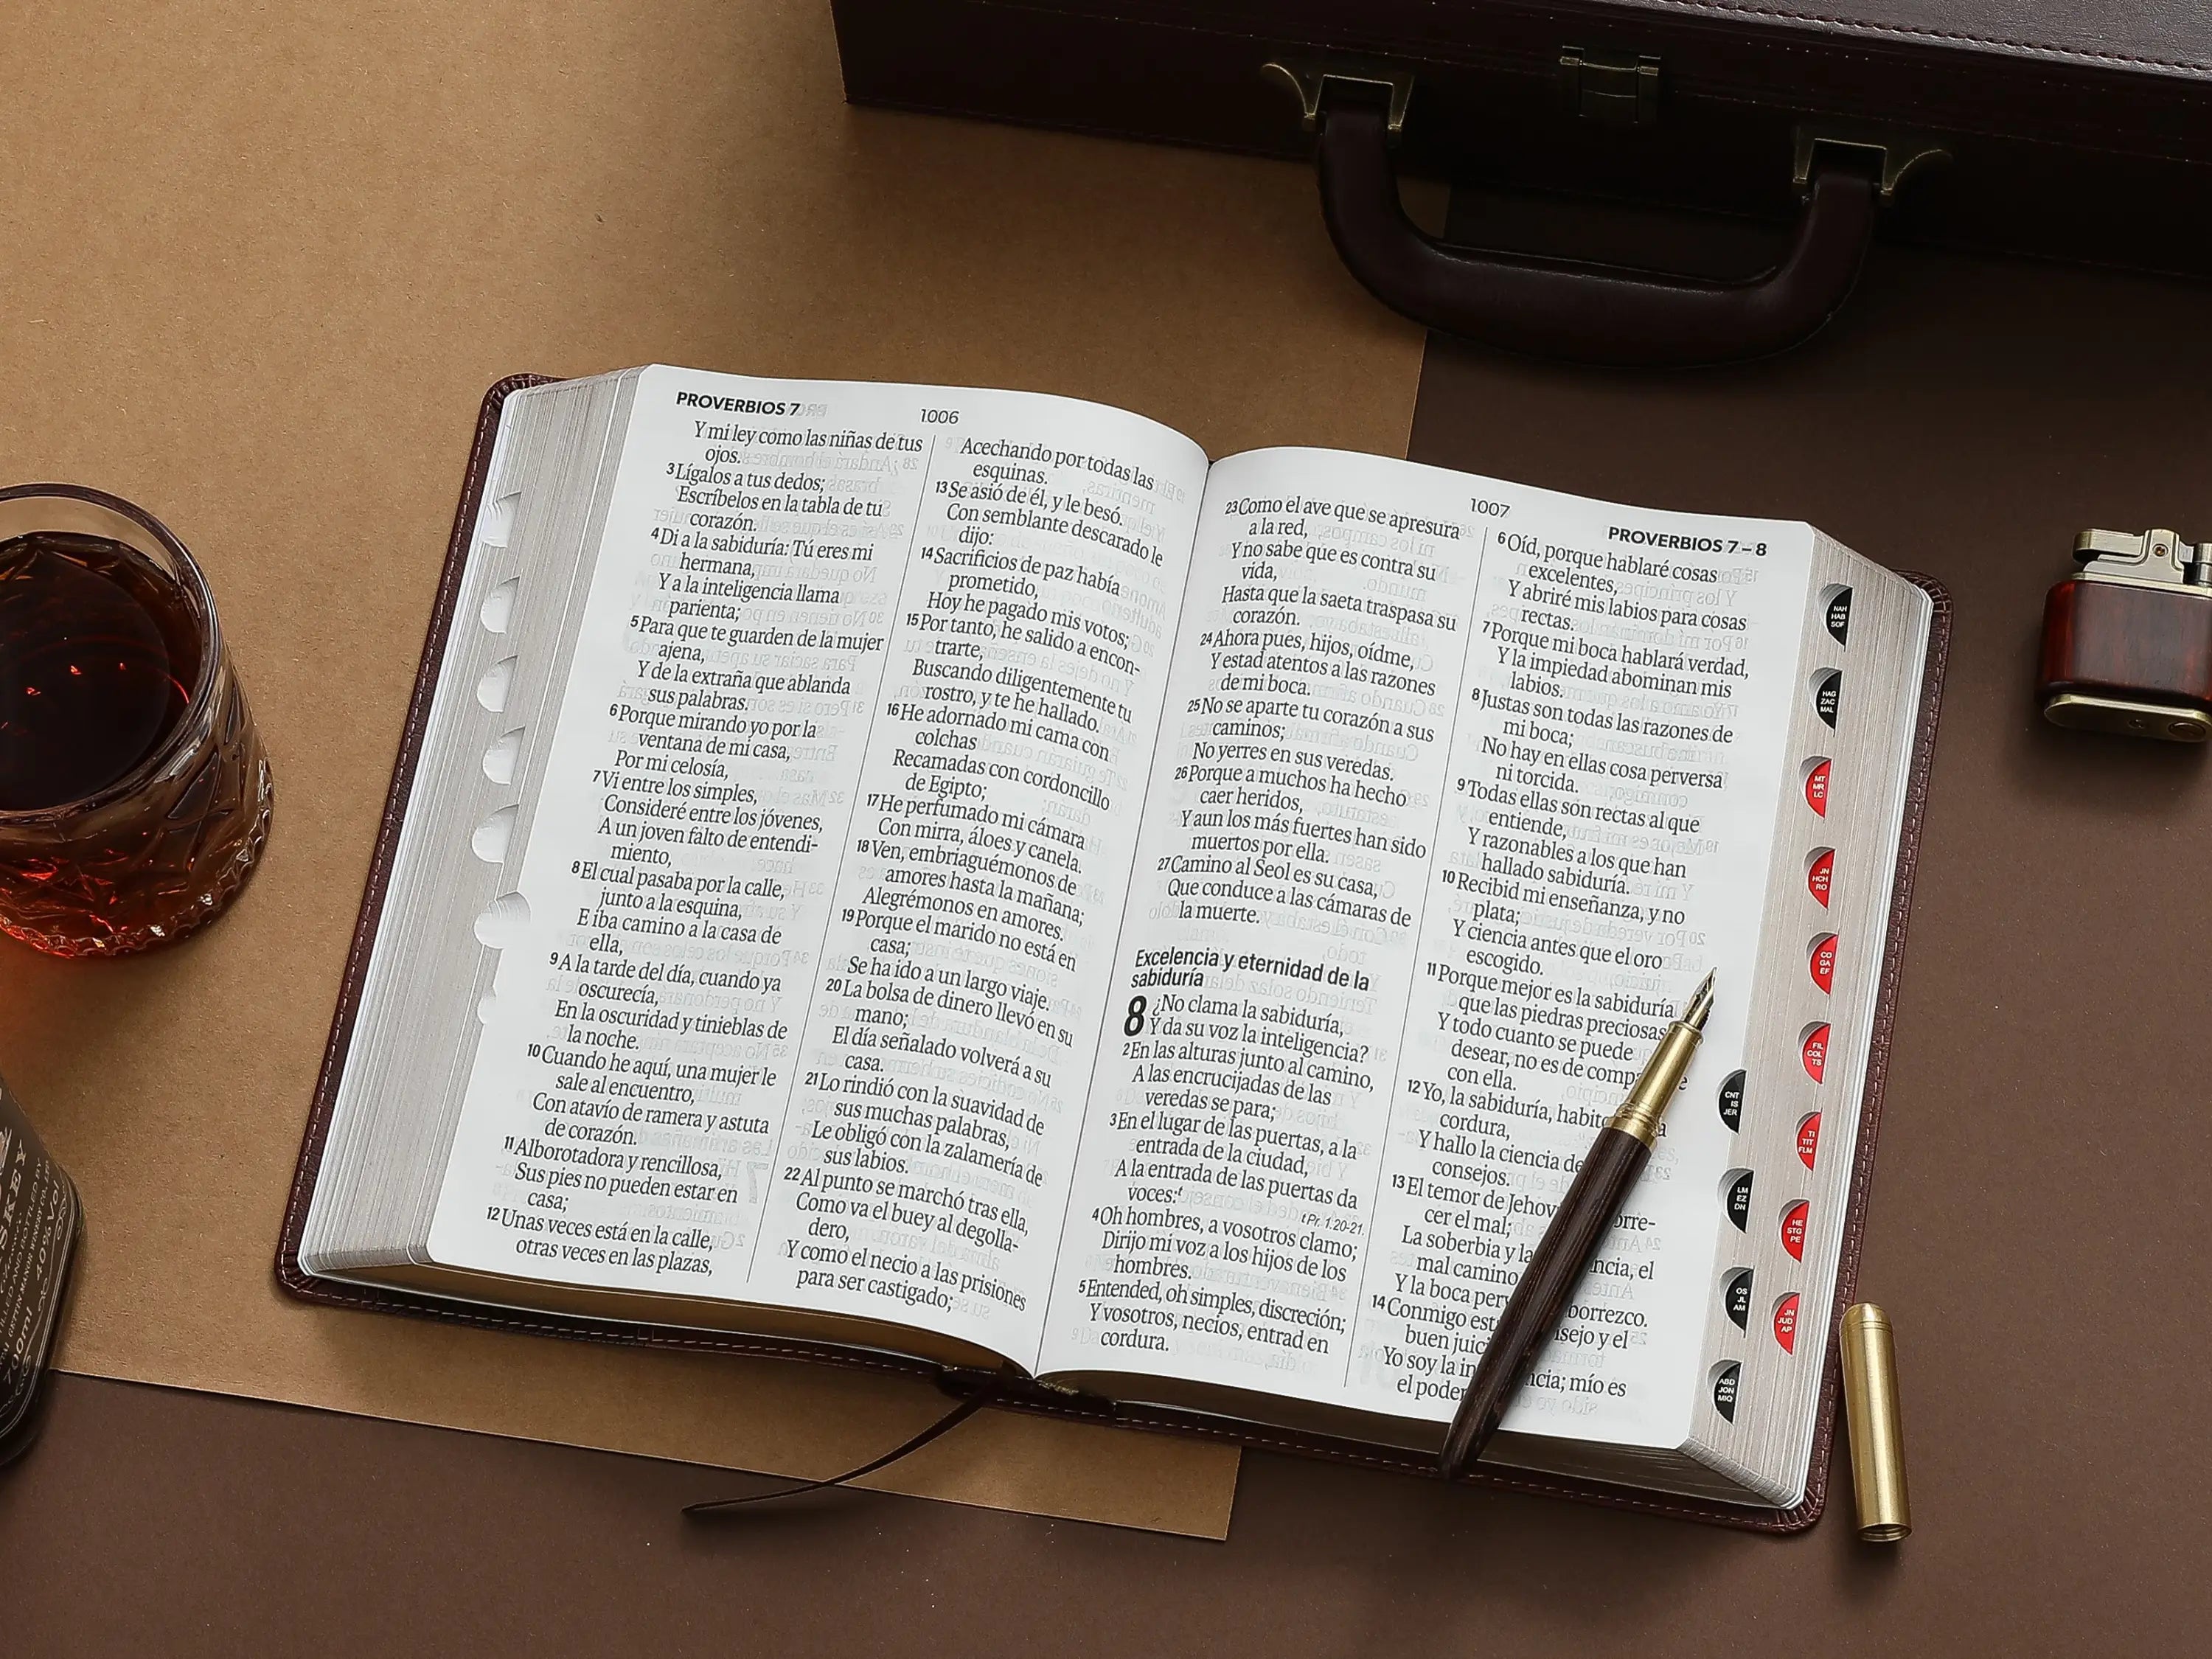 PROVERBIOS 7
1006
Y mi ley como las niñas de tus
ojos.
3 Lígalos a tus dedos;
Escríbelos en la tabla de tu
corazón.
4 Di a la sabiduría: Tú eres mi
hermana,
Y a la inteligencia llama
parienta;
5 Para que te guarden de la mujer
ajena,
Y de la extraña que ablanda
sus palabras.
6 Porque mirando yo por la
ventana de mi casa,
Por mi celosía,
7 Vi entre los simples,
Consideré entre los jóvenes,
A un joven falto de entendi-
miento,
8 El cual pasaba por la calle,
junto a la esquina,
E iba camino a la casa de
ella,
9 A la tarde del día, cuando ya
oscurecía,
En la oscuridad y tinieblas de
la noche.
10 Cuando he aquí, una mujer le
sale al encuentro,
Con atavío de ramera y astuta
de corazón.
11 Alborotadora y rencillosa,
Sus pies no pueden estar en
casa;
12 Unas veces está en la calle,
otras veces en las plazas,
Acechando por todas las
esquinas.
13 Se asió de él, y le besó.
Con semblante descarado le
dijo:
14 Sacrificios de paz había
prometido,
Hoy he pagado mis votos;
15 Por tanto, he salido a encon-
trarte,
Buscando diligentemente tu
rostro, y te he hallado.
16 He adornado mi cama con
colchas
Recamadas con cordoncillo
de Egipto;
17 He perfumado mi cámara
Con mirra, áloes y canela.
18 Ven, embriaguémonos de
amores hasta la mañana;
Alegrémonos en amores.
19 Porque el marido no está en
casa;
Se ha ido a un largo viaje.
20 La bolsa de dinero llevó en su
mano;
El día señalado volverá a su
casa.
21 Lo rindió con la suavidad de
sus muchas palabras,
Le obligó con la zalamería de
sus labios.
22 Al punto se marchó tras ella,
Como va el buey al degolla-
dero,
Y como el necio a las prisiones
para ser castigado;
1007
PROVERBIOS 7 – 8
23 Como el ave que se apresura
a la red,
Y no sabe que es contra su
vida,
Hasta que la saeta traspasa su
corazón.
24 Ahora pues, hijos, oídme,
Y estad atentos a las razones
de mi boca.
25 No se aparte tu corazón a sus
caminos;
No yerres en sus veredas.
26 Porque a muchos ha hecho
caer heridos,
Y aun los más fuertes han sido
muertos por ella.
27 Camino al Seol es su casa,
Que conduce a las cámaras de
la muerte.
Excelencia y eternidad de la
sabiduría
8 ¿No clama la sabiduría,
Y da su voz la inteligencia?
2 En las alturas junto al camino,
A las encrucijadas de las
veredas se para;
3 En el lugar de las puertas, a la
entrada de la ciudad,
A la entrada de las puertas da
voces:t
t Pr. 1.20-21.
4 Oh hombres, a vosotros clamo;
Dirijo mi voz a los hijos de los
hombres.
5 Entended, oh simples, discreción;
Y vosotros, necios, entrad en
cordura.
6 Oíd, porque hablaré cosas
excelentes,
Y abriré mis labios para cosas
rectas.
7 Porque mi boca hablará verdad,
Y la impiedad abominan mis
labios.
8 Justas son todas las razones de
mi boca;
No hay en ellas cosa perversa
ni torcida.
9 Todas ellas son rectas al que
entiende,
Y razonables a los que han
hallado sabiduría.
10 Recibid mi enseñanza, y no
plata;
Y ciencia antes que el oro
escogido.
11 Porque mejor es la sabiduría
que las piedras preciosas
Y todo cuanto se puede
desear, no es de comp
con ella.
12 Yo, la sabiduría, habito
cordura,
Y hallo la ciencia de
consejos.
13 El temor de Jehov orre-
cer el mal;
La soberbia y la ncia, el
mal camino
Y la boca per borrezco.
14 Conmigo est sejo y el
buen juic
Yo soy la in ncia; mío es
el poder
NAH
HAB
SOF
HAG
ZAC
MAL
MT
MR
LC
JN
HCH
RO
CO
GA
EF
FIL
COL
TS
TI
TIT
FLM
HE
STG
PE
JN
JUD
AP
CNT
IS
JER
LM
EZ
DN
OS
JL
AM
ABD
JON
MIQ
SKEY
700ml 40% vol